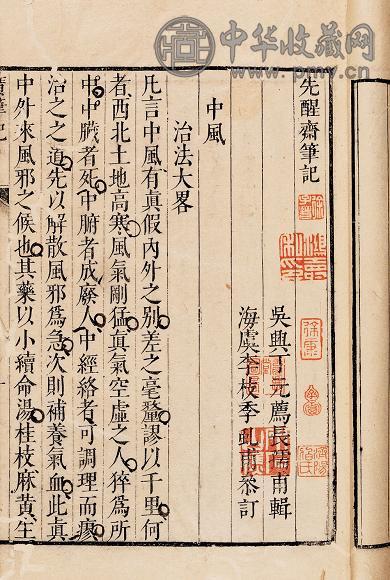 中华收藏网
www.pmyv.com
先醒齋筆記
吳興丁元薦長孺甫輯
海虞李枝季虬甫叅訂
中風
治法大畧
凡言中風有真假內外之別差之毫釐謬以千里何
者西北土地高寒風氣剛猛真氣空虛之人猝爲所
中中臟者死中腑者成廢人中經絡者可調理而瘳
治之之道先以解散風邪爲急次則補養氣血此真
中外來風邪之候也其藥以小續命湯桂枝麻黃生
廣筆記